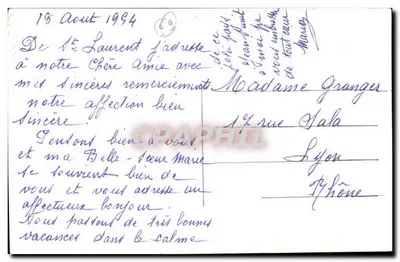 18 Aout 1954
De St. Laurent j'adresse
à notre Chère Amie avec
mes sincères remerciement
notre affection bien
sincère.
Pensons bien à vous
et ma Belle-soeur Marie
se souvient bien de
vous et vous adresse un
affectueux bonjour.
Nous passons de très bonnes
vacances dans le calme
de ce
joli pays
vous embrasse
de tout cœur
Madame Granger
17 rue Sala
Lyon
Rhône
CPAPHIL